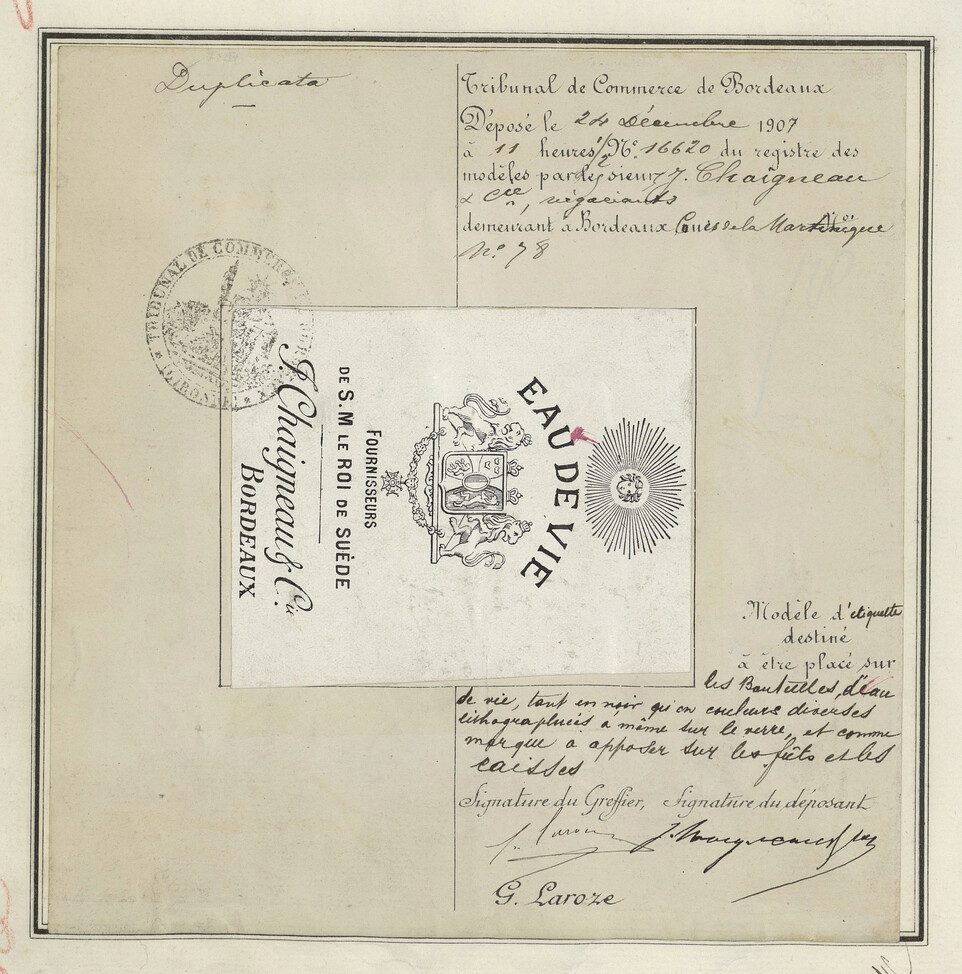 Duplicata
Tribunal de Commerce de Bordeaux
Déposé le 24 Décembre 1907
à 11 heures 1/2 No. 16620 du registre des
modèles par les sieurs J. Chaigneau
& Cie, négociants
demeurant à Bordeaux Cours de la Martinique
No. 78
TRIBUNAL DE COMMERCE
(GIRONDE)
EAU DE VIE
FOURNISSEURS
DE S. M LE ROI DE SUÈDE
J. Chaigneau & Cie.
BORDEAUX
Modèle d'etiquette
destiné
à être placé sur
les Bouteilles, d'eau
de vie, tant en noir qu'en couleurs diverses
lithographiées à même sur le verre, et comme
marque à apposer sur les fûts et les
caisses
Signature du Greffier, Signature du déposant
G. Laroze